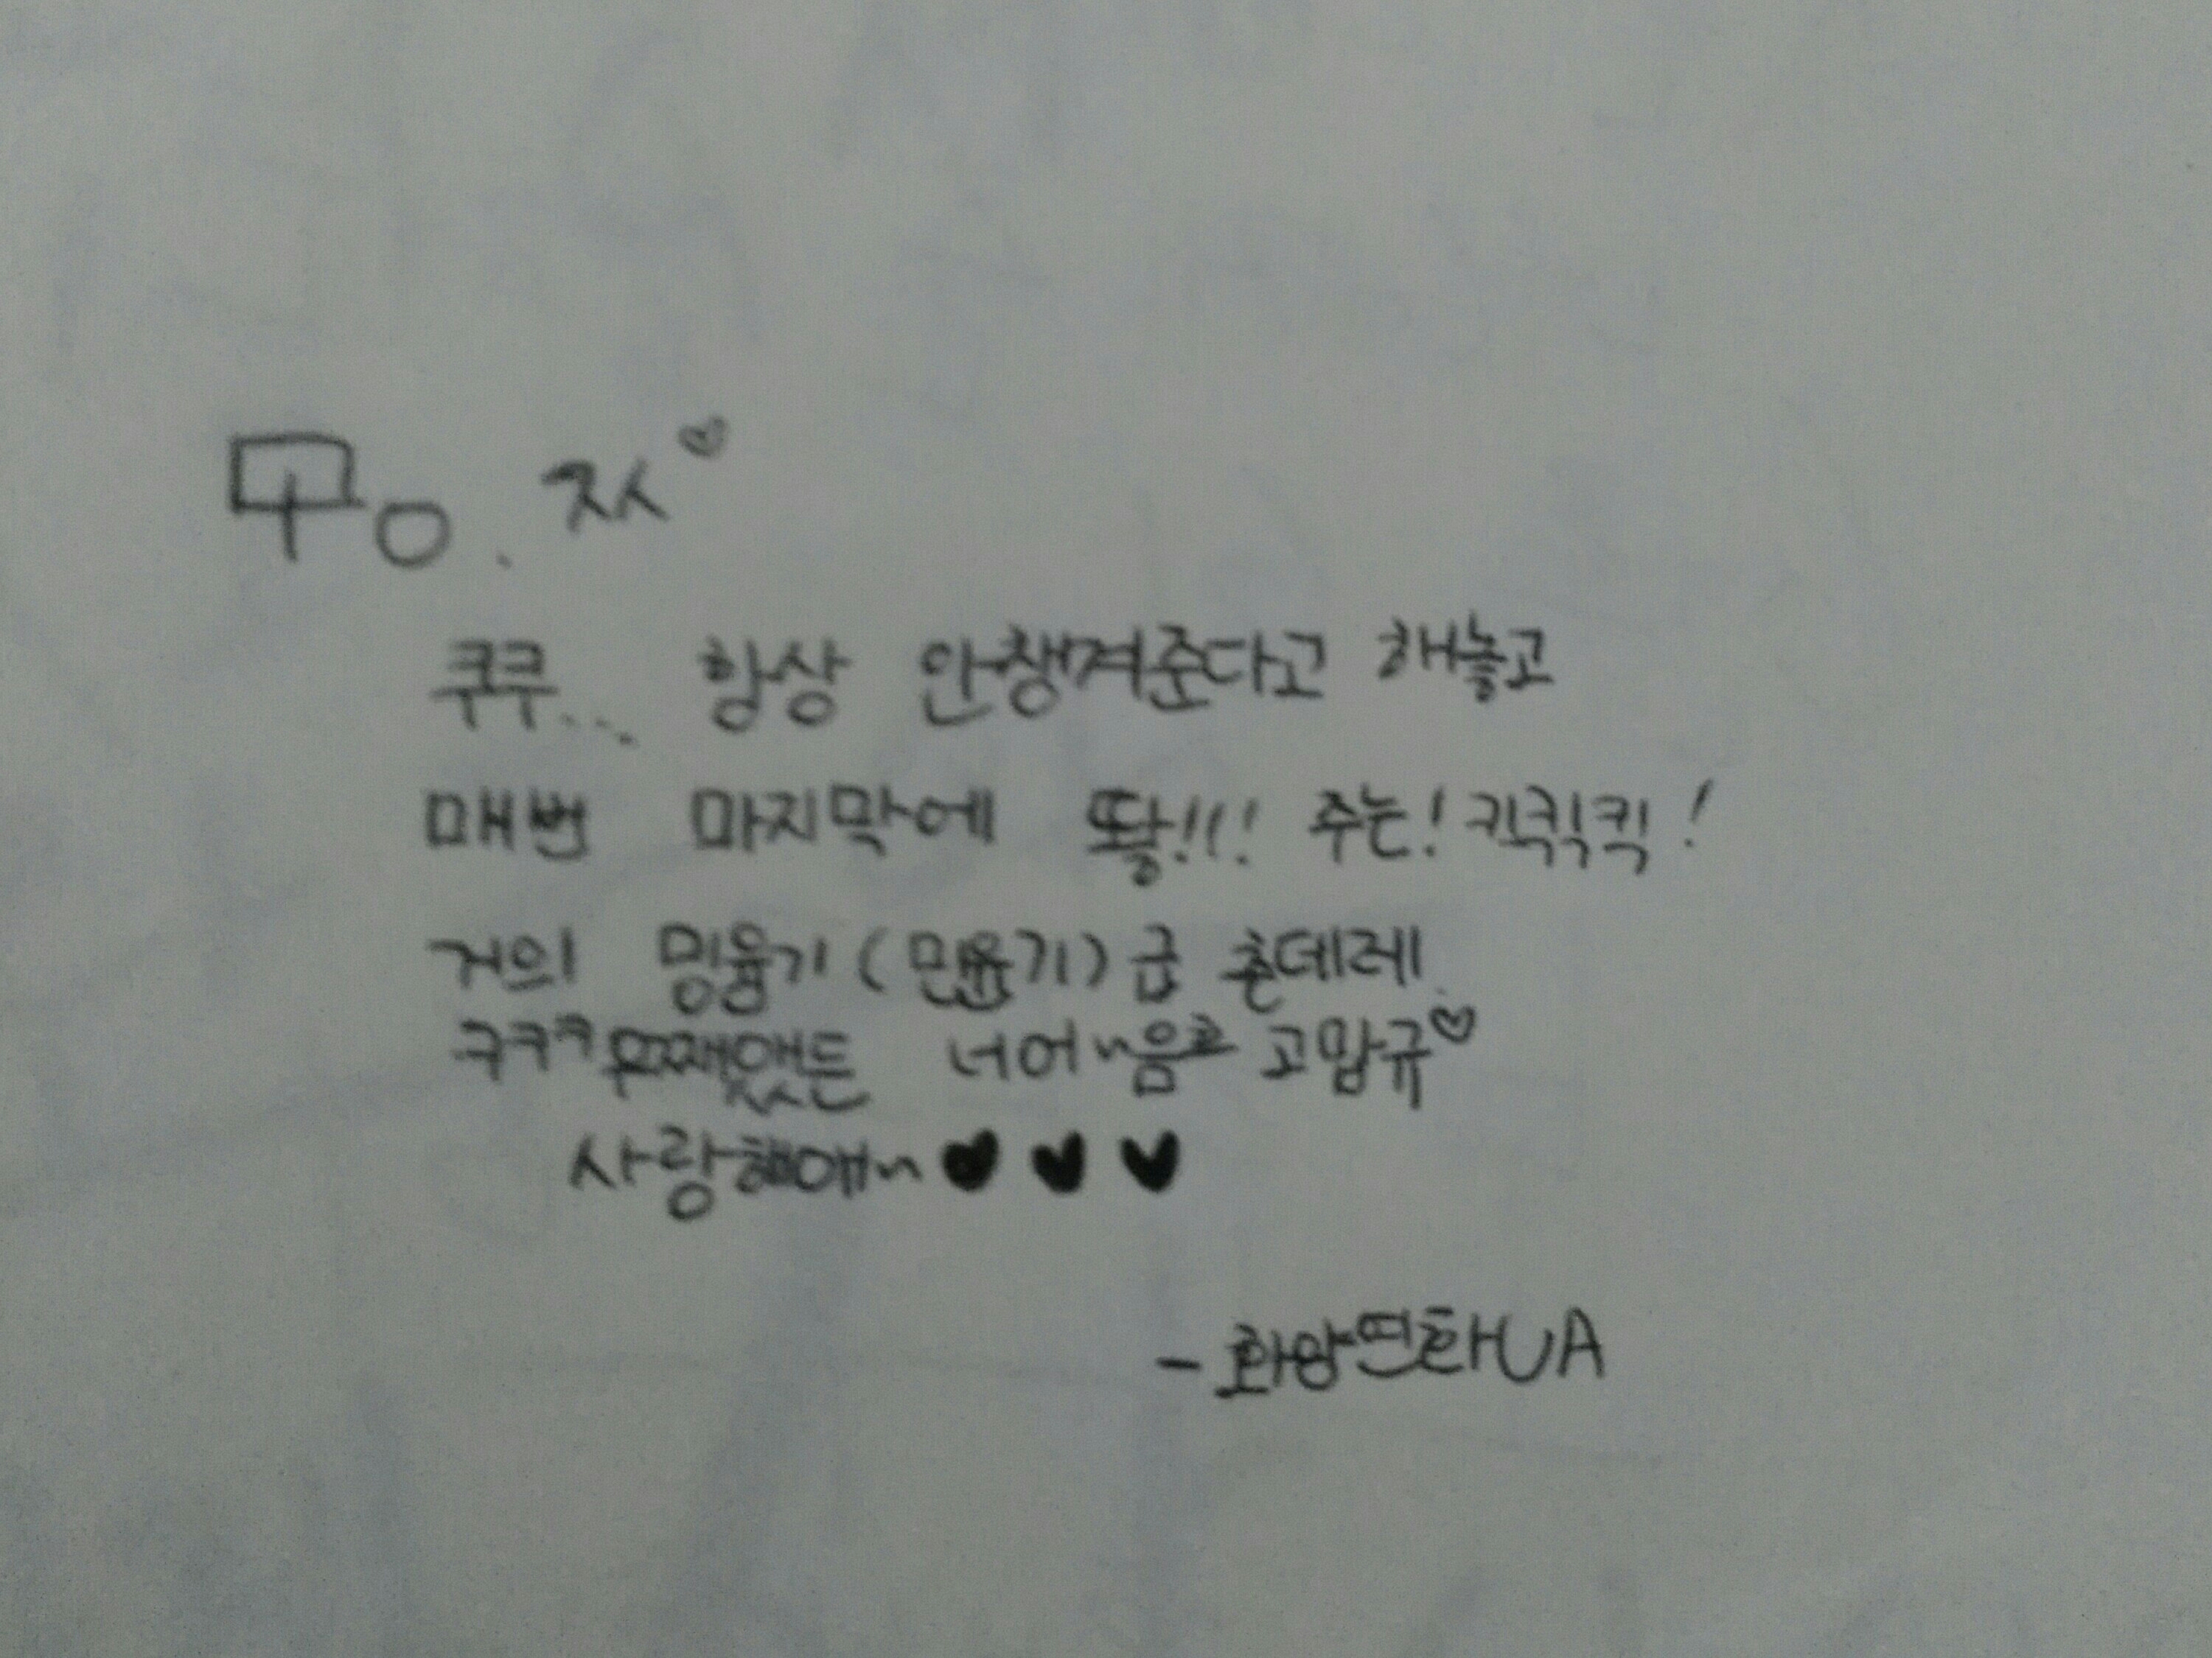 To. 지ㅅ♡
쿠쿠... 항상 안챙겨준다고 해놓고
매번 마지막에 똻!!! 주는! 킥킥킥!
거의 밍융기 (민윤기) 급 츤데레.
ㅋㅋㅋ 어쨌든 너어~음 고맙규♡
사랑해애~♥♥♥
- 화양연화UA